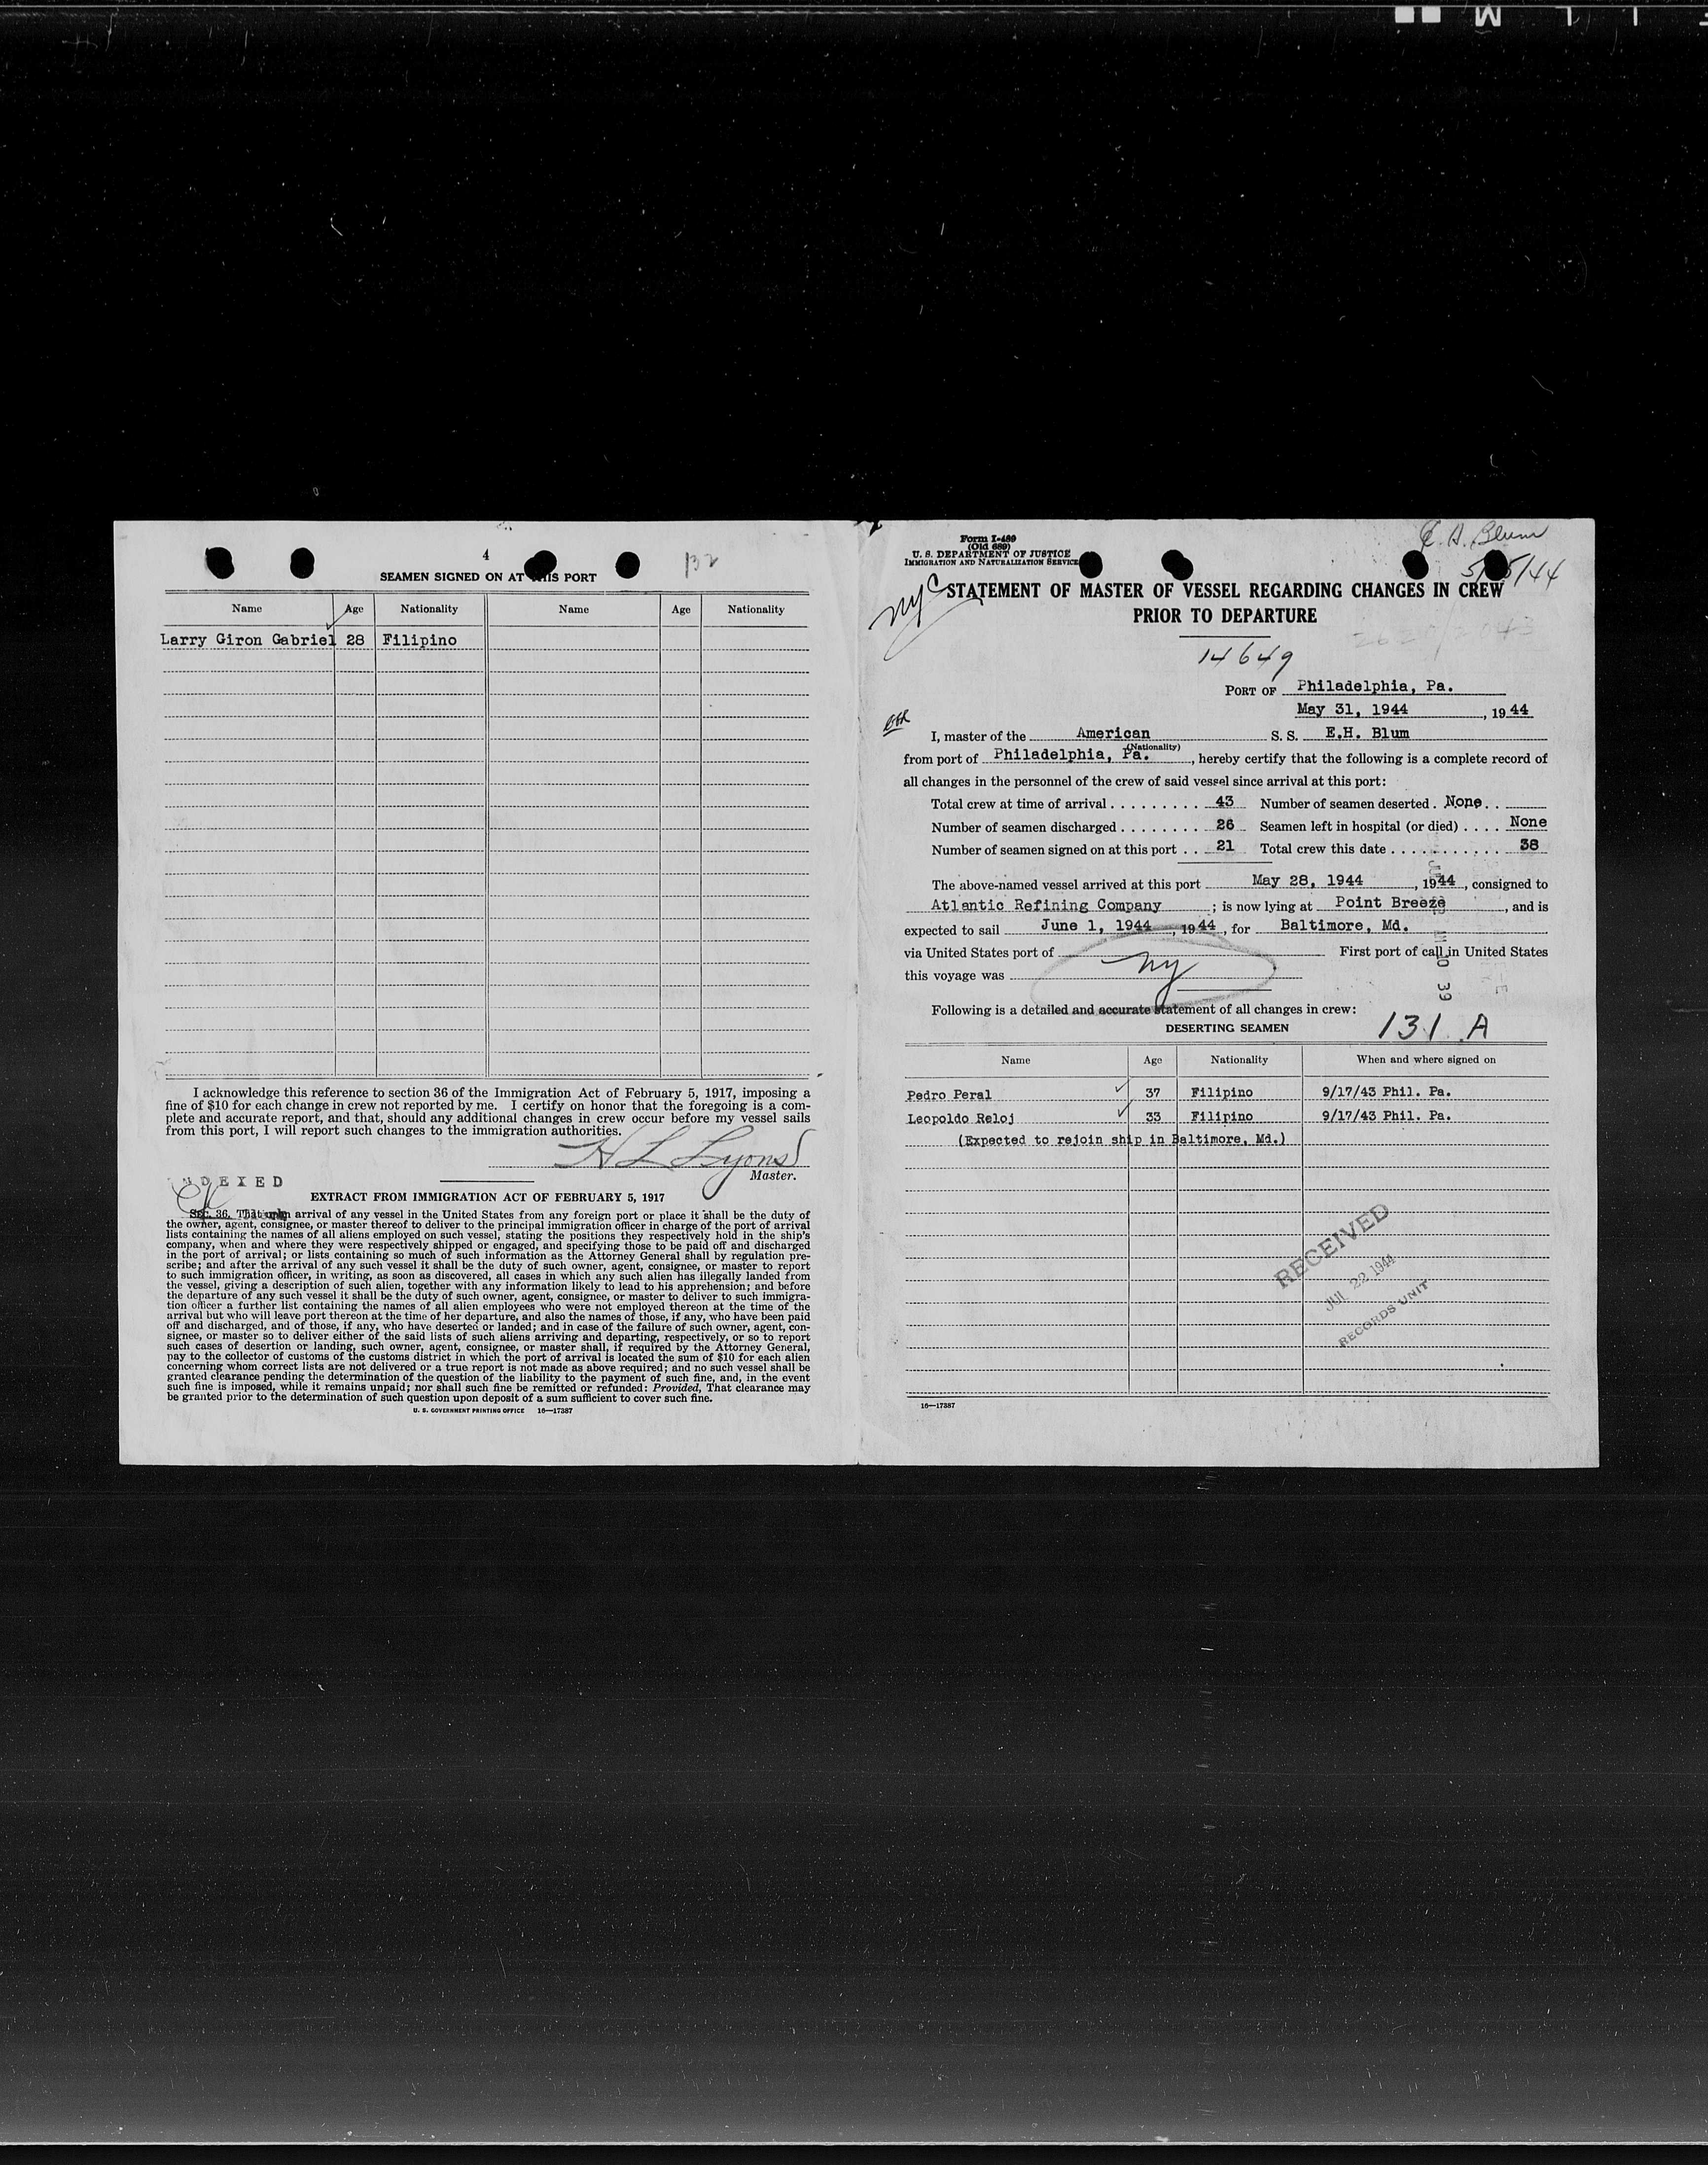 4
132
SEAMEN SIGNED ON AT THIS PORT
Name Age Nationality Name Age Nationality
Larry Giron Gabriel 28 Filipino
I acknowledge this reference to section 36 of the Immigration Act of February 5, 1917, imposing a
fine of $10 for each change in crew not reported by me. I certify on honor that the foregoing is a com-
plete and accurate report, and that, should any additional changes in crew occur before my vessel sails
from this port, I will report such changes to the immigration authorities.
H L Lyons
Master.
INDEXED
EXTRACT FROM IMMIGRATION ACT OF FEBRUARY 5, 1917
SEC. 36. That upon arrival of any vessel in the United States from any foreign port or place it shall be the duty of
the owner, agent, consignee, or master thereof to deliver to the principal immigration officer in charge of the port of arrival
lists containing the names of all aliens employed on such vessel, stating the positions they respectively hold in the ship's
company, when and where they were respectively shipped or engaged, and specifying those to be paid off and discharged
in the port of arrival; or lists containing so much of such information as the Attorney General shall by regulation pre-
scribe; and after the arrival of any such vessel it shall be the duty of such owner, agent, consignee, or master to report
to such immigration officer, in writing, as soon as discovered, all cases in which any such alien has illegally landed from
the vessel, giving a description of such alien, together with any information likely to lead to his apprehension; and before
the departure of any such vessel it shall be the duty of such owner, agent, consignee, or master to deliver to such immigra-
tion officer a further list containing the names of all alien employees who were not employed thereon at the time of the
arrival but who will leave port thereon at the time of her departure, and also the names of those, if any, who have been paid
off and discharged, and of those, if any, who have deserted or landed; and in case of the failure of such owner, agent, con-
signee, or master so to deliver either of the said lists of such aliens arriving and departing, respectively, or so to report
such cases of desertion or landing, such owner, agent, consignee, or master shall, if required by the Attorney General,
pay to the collector of customs of the customs district in which the port of arrival is located the sum of $10 for each alien
concerning whom correct lists are not delivered or a true report is not made as above required; and no such vessel shall be
granted clearance pending the determination of the question of the liability to the payment of such fine, and, in the event
such fine is imposed, while it remains unpaid; nor shall such fine be remitted or refunded: Provided, That clearance may
be granted prior to the determination of such question upon deposit of a sum sufficient to cover such fine.
U. S. GOVERNMENT PRINTING OFFICE 16—17387
Form I-489
(Old 689)
U. S. DEPARTMENT OF JUSTICE
IMMIGRATION AND NATURALIZATION SERVICE
E. H. Blum
5/ 5/44
nyc
STATEMENT OF MASTER OF VESSEL REGARDING CHANGES IN CREW
PRIOR TO DEPARTURE
14649
PORT OF Philadelphia, Pa.
May 31, 1944, 1944
I, master of the American S. S. E.H. Blum
(Nationality)
from port of Philadelphia, Pa., hereby certify that the following is a complete record of
all changes in the personnel of the crew of said vessel since arrival at this port:
Total crew at time of arrival . . . . . . . . . 43 Number of seamen deserted . None . .
Number of seamen discharged . . . . . . . . 26 Seamen left in hospital (or died) . . . . None
Number of seamen signed on at this port . . 21 Total crew this date . . . . . . . . . . . 38
The above-named vessel arrived at this port May 28, 1944, 1944, consigned to
Atlantic Refining Company; is now lying at Point Breeze, and is
expected to sail June 1, 1944, 1944, for Baltimore, Md.
via United States port of First port of call in United States
this voyage was ny
39
Following is a detailed and accurate statement of all changes in crew:
DESERTING SEAMEN
131 A
Name Age Nationality When and where signed on
Pedro Peral 37 Filipino 9/17/43 Phil. Pa.
Leopoldo Reloj 33 Filipino 9/17/43 Phil. Pa.
(Expected to rejoin ship in Baltimore, Md.)
RECEIVED
JUL 22 1944
RECORDS UNIT
16—17387